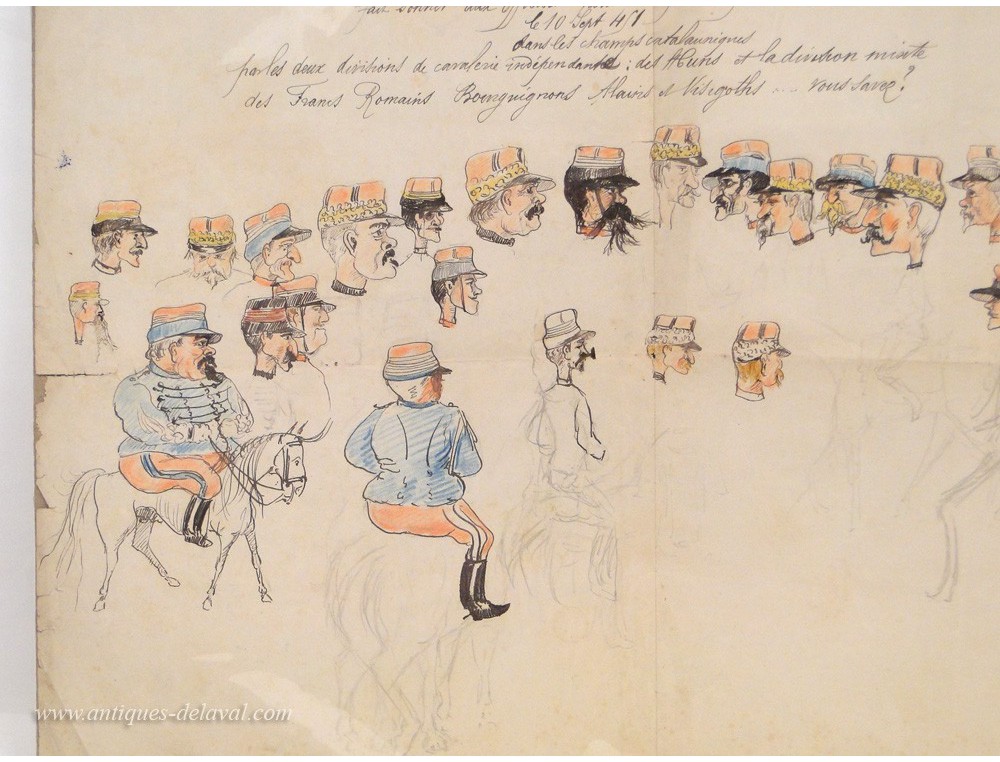 fait donner aux
le 10 Sept 451
dans les champs catalauniques
par les deux divisions de cavalerie indépendante : des Huns et la division mixte
des Francs Romains Bourguignons Alains et Visigoths .... vous savez ?
www.antiques-delaval.com